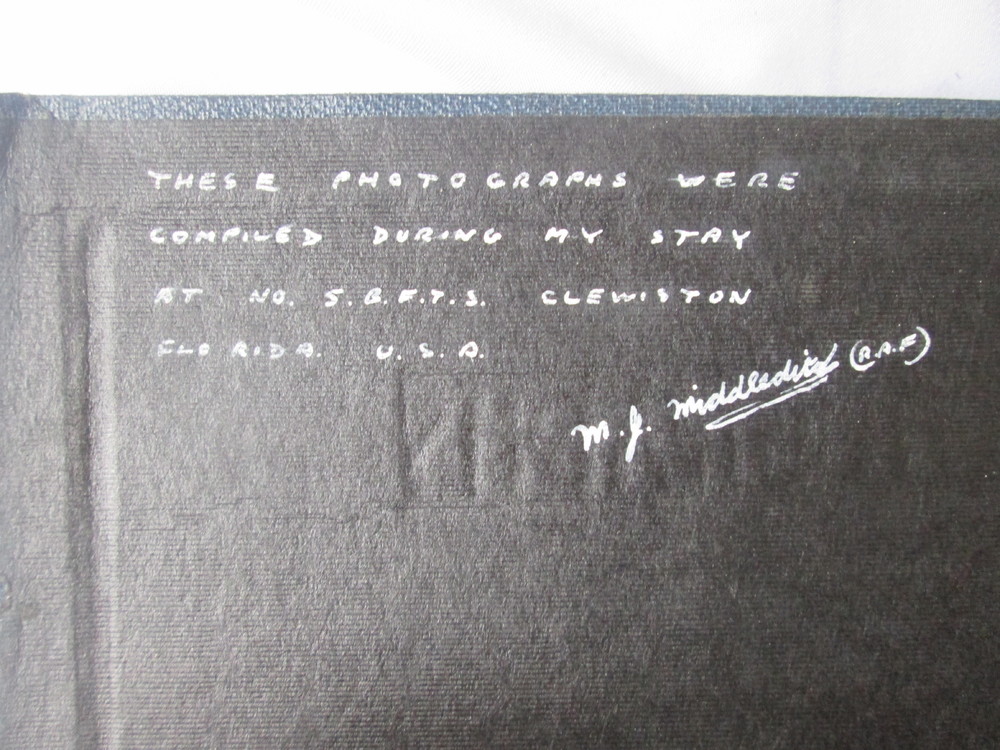 THESE PHOTOGRAPHS WERE
COMPILED DURING MY STAY
AT NO. 5. B.F.T.S. CLEWISTON
FLORIDA. U.S.A.
M.J. Middleditch (R.A.F)